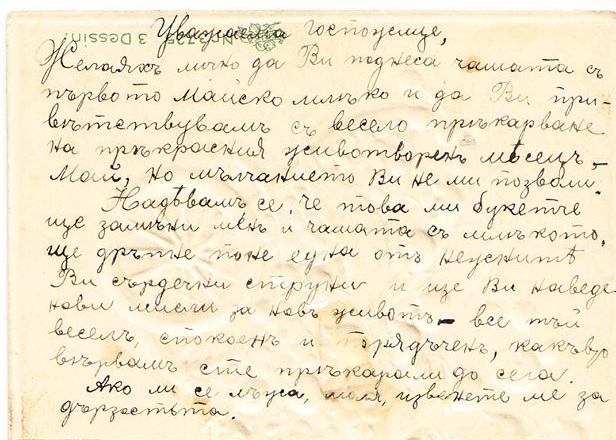 Nr. 3725 3 Dessini
Уважаема Госпожице,
Желаяхъ лично да Ви поднеса чашата съ
първото Майско млѣко и да Ви при-
вѣтствувамъ съ весело прѣкарване
на прѣкрасния животворенъ мѣсецъ,–
Май, но мълчанието Ви не ми позволи.
Надѣвамъ се, че това ми букетче
ще замѣни мѣнъ и чашата съ млѣкото,
ще дръпне поне една отъ неуснитѣ
Ви сърдечни струни и ще Ви наведе
нови мисли за новъ животъ – все тъй
веселъ, спокоенъ и порядъченъ, какъвто
вѣрвамъ сте прѣкарали до сега.
Ако ли се лъжа, моля, извѣнете ме за
дързостьта.